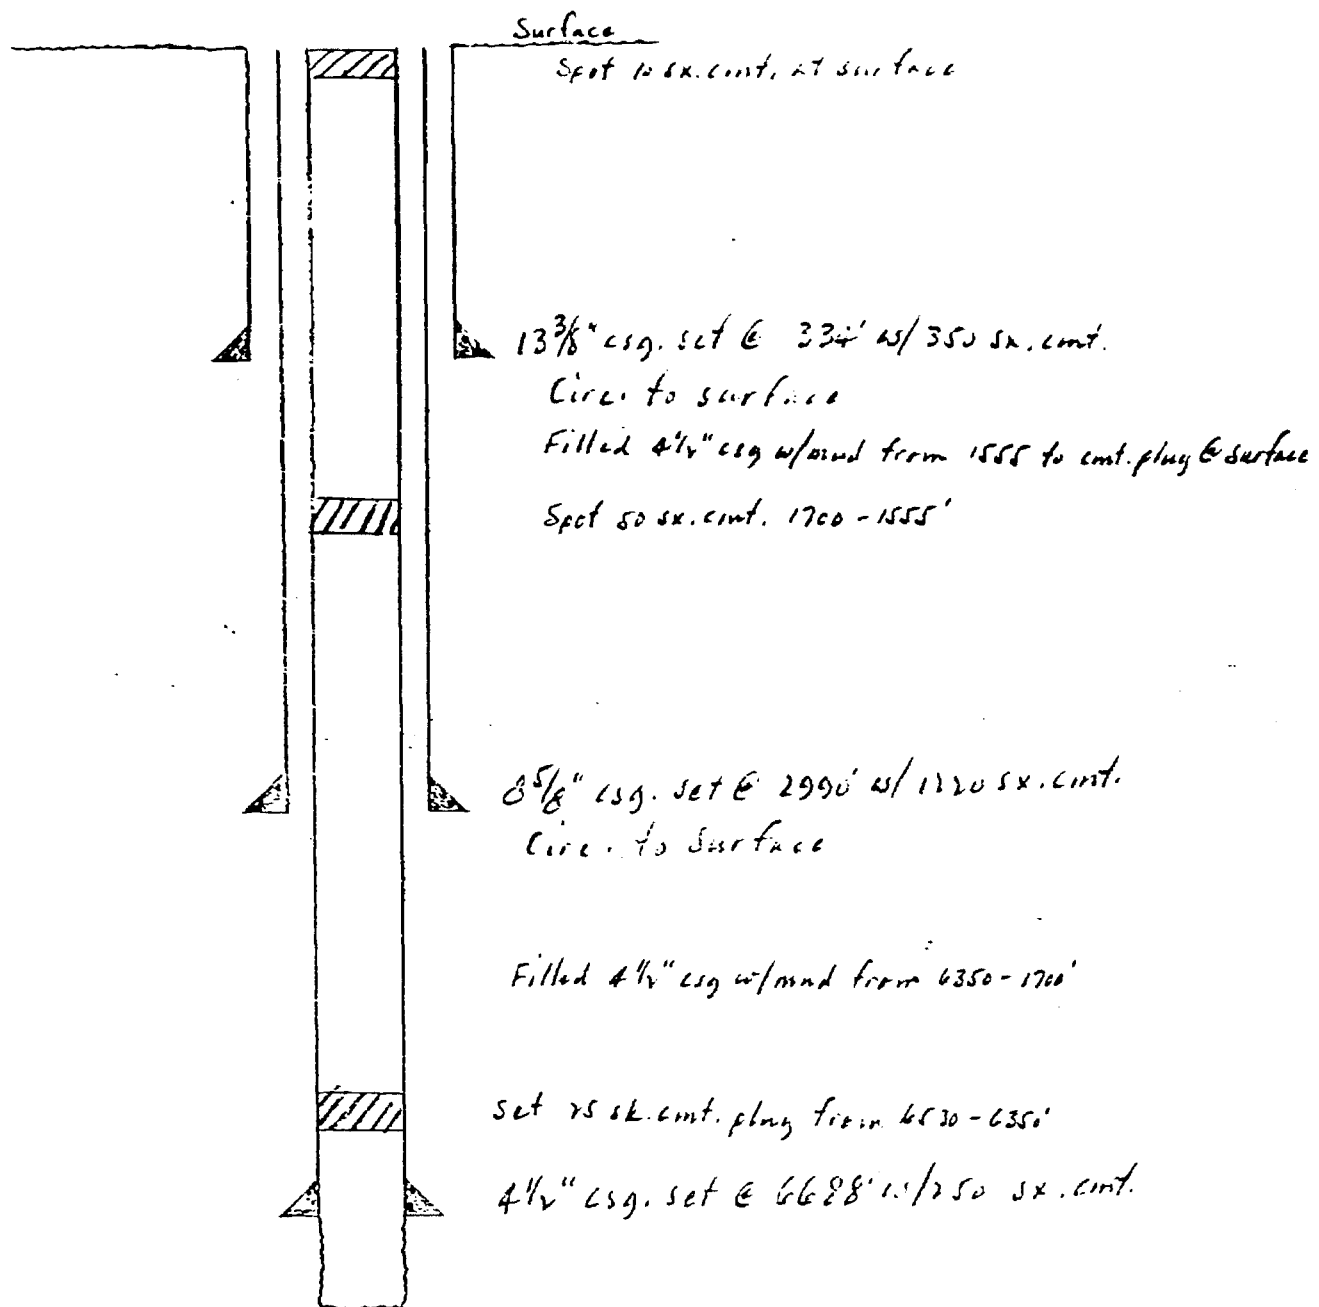 Surface
Spot 10 sx. cmt. at surface
13 3/8" csg. set @ 334' w/ 350 sx. cmt.
Circ. to surface
Filled 4 1/2" csg w/mud from 1555 to cmt. plug @ surface
Spot 50 sx. cmt. 1700 - 1555'
8 5/8" csg. set @ 2990' w/ 1220 sx. cmt.
Circ. to Surface
Filled 4 1/2" csg w/mud from 6350 - 1700'
Set 25 sk. cmt. plug from 6530 - 6350'
4 1/2" csg. set @ 6688' w/ 250 sx. cmt.